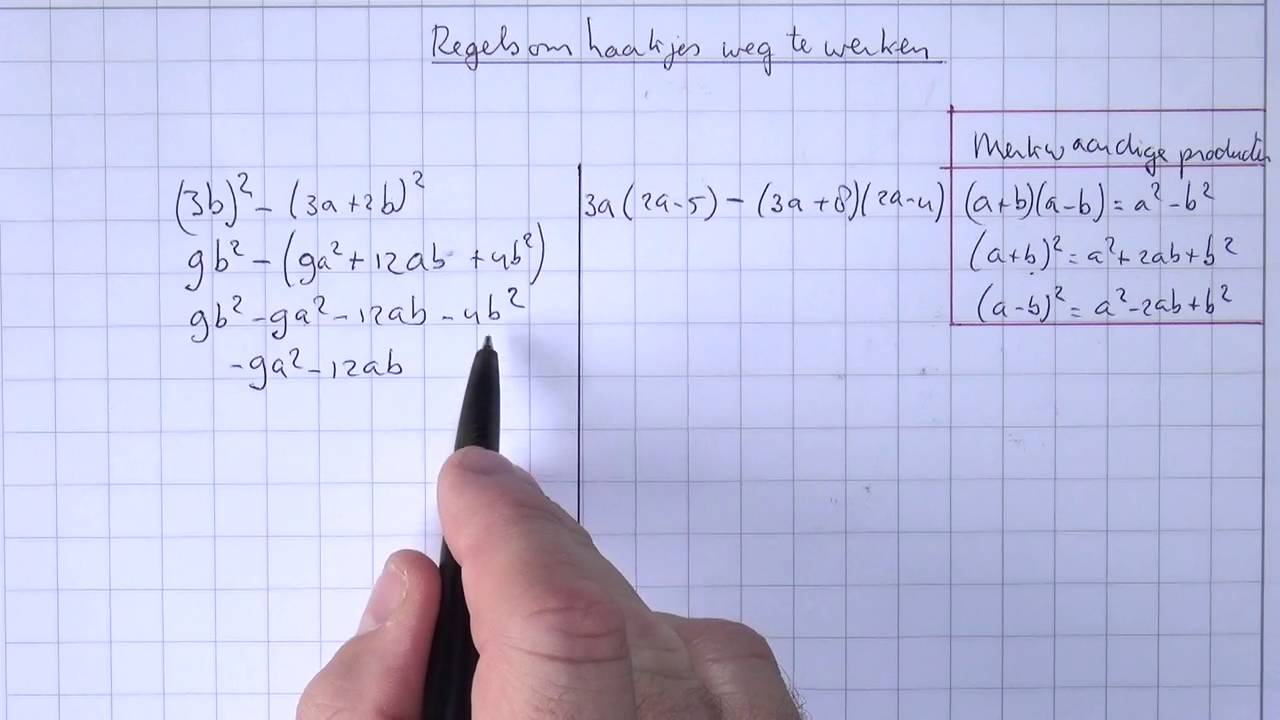 Regels om haakjes weg te werken
(3b)² - (3a+2b)²
9b² - (9a² + 12ab + 4b²)
9b² - 9a² - 12ab - 4b²
-9a² - 12ab
3a(2a-5) - (3a+8)(2a-4)
Merkwaardige producten
(a+b)(a-b) = a² - b²
(a+b)² = a² + 2ab + b²
(a-b)² = a² - 2ab + b²